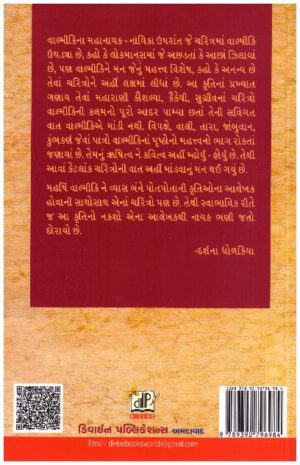 વાલ્મીકિના મહાનાયક - નાયિકા ઉપરાંત જે ચરિત્રમાં વાલ્મીકિ
ઉઘડ્યા છે, કહો કે લોકમાનસમાં જે અછડતાં કે આછાં ઝિલાયાં
છે, પણ વાલ્મીકિને મન જેનું મહત્ત્વ વિશેષ, કહો કે અનન્ય છે
તેવાં ચરિત્રોને અહીં લક્ષમાં લીધાં છે. આ કૃતિનાં પ્રખ્યાત
ગણાય તેવાં મહારાણી કૌશલ્યા, કૈકેયી, સુગ્રીવનાં ચરિત્રો
વાલ્મીકિની કલમનો પૂરો આદર પામ્યા છતાં તેની સવિગત
વાત વાલ્મીકિએ માંડી નથી. વિપક્ષે, વાલી, તારા, જાંબુવાન,
કુંભકર્ણ જેવાં પાત્રો વાલ્મીકિનાં પૃષ્ઠોનો મહત્ત્વનો ભાગ રોકતાં
જણાયાં છે. તેમનું ઋષિત્વ ને કવિત્વ અહીં મ્હોર્યું - ફોર્યું છે. તેથી
આવાં કેટલાંક ચરિત્રોની વાત અહીં માંડવાનું મન થઈ ગયું છે.
મહર્ષિ વાલ્મીકિ ને વ્યાસ બંને પોતપોતાની કૃતિઓના આલેખક
હોવાની સાથોસાથ એનાં ચરિત્રો પણ છે. તેથી સ્વાભાવિક રીતે
જ આ કૃતિનો નકશો એના આલેખકથી નાયક ભણી જતો
દોરાયો છે.
-દર્શના ધોળકિયા
DIVINE
ડિવાઈન પબ્લિકેશન્સ અમદાવાદ
Email: divinebooksworld@gmail.com
ISBN 978 93 90796 98 4
9789390796984